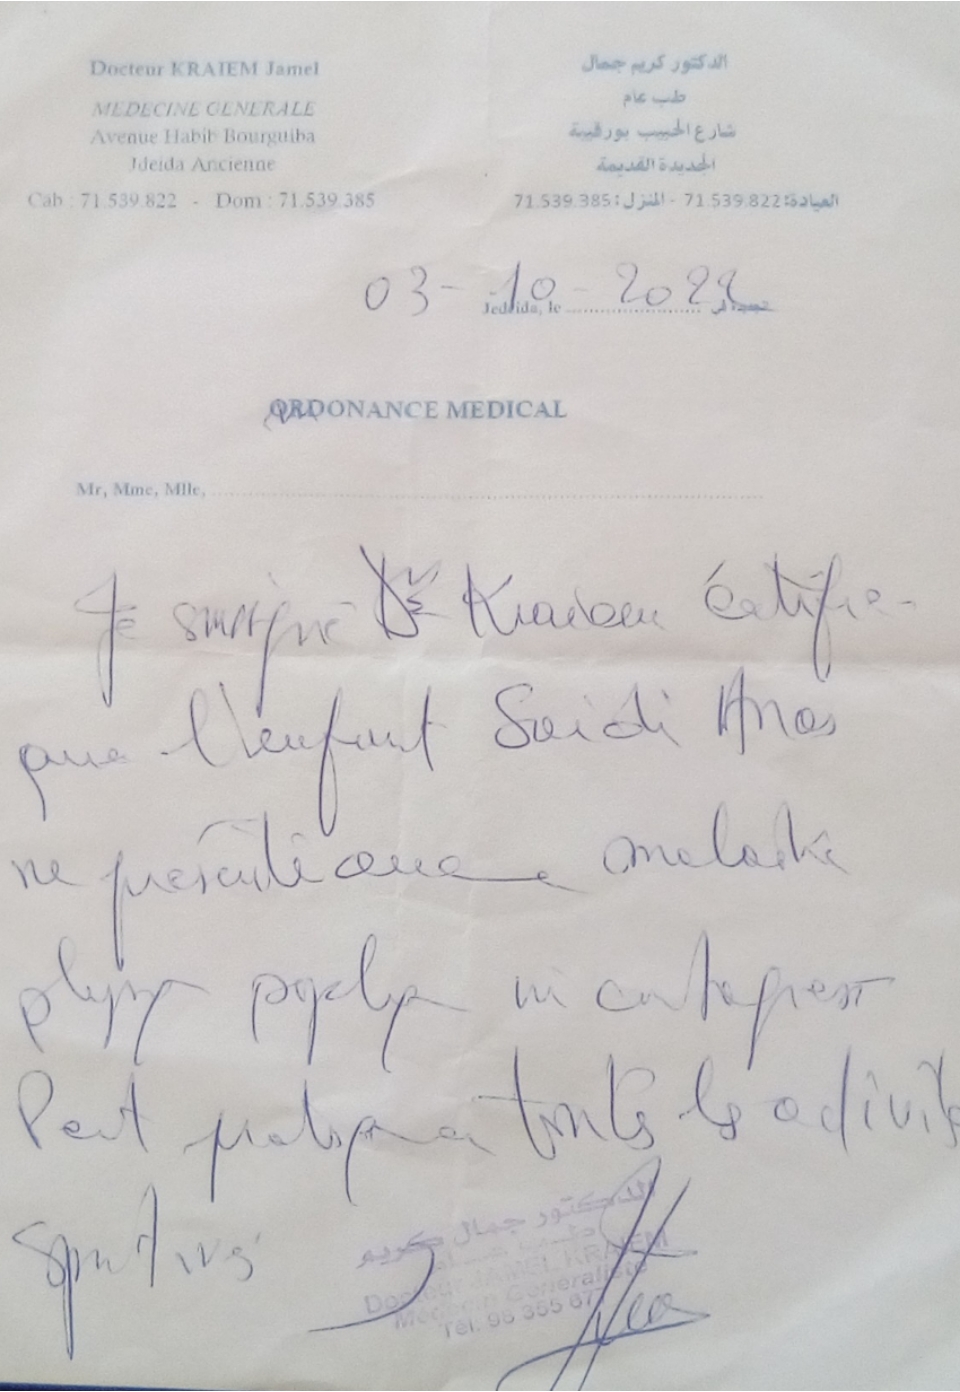 Docteur KRAIEM Jamel
MEDECINE GENERALE
Avenue Habib Bourguiba
Jdeida Ancienne
Cab : 71.539.822 - Dom : 71.539.385
الدكتور كريم جمال
طب عام
شارع الحبيب بورقيبة
الجديدة القديمة
العيادة: 71.539.822 - المنزل: 71.539.385
03-10-2022
Jedeida, le .................... جديدة في
ORDONANCE MEDICAL
Mr, Mme, Mlle, ....................
Je soussigné Dr Kraiem certifie
que l'enfant Saidi Anas
ne présente aucune maladie
physique psychique ni contagieuse
Peut pratiquer toutes les activités
sportives
الدكتور جمال كريم
طب عام
Docteur JAMEL KRAIEM
Médecin Généraliste
Tél. 98 355 67